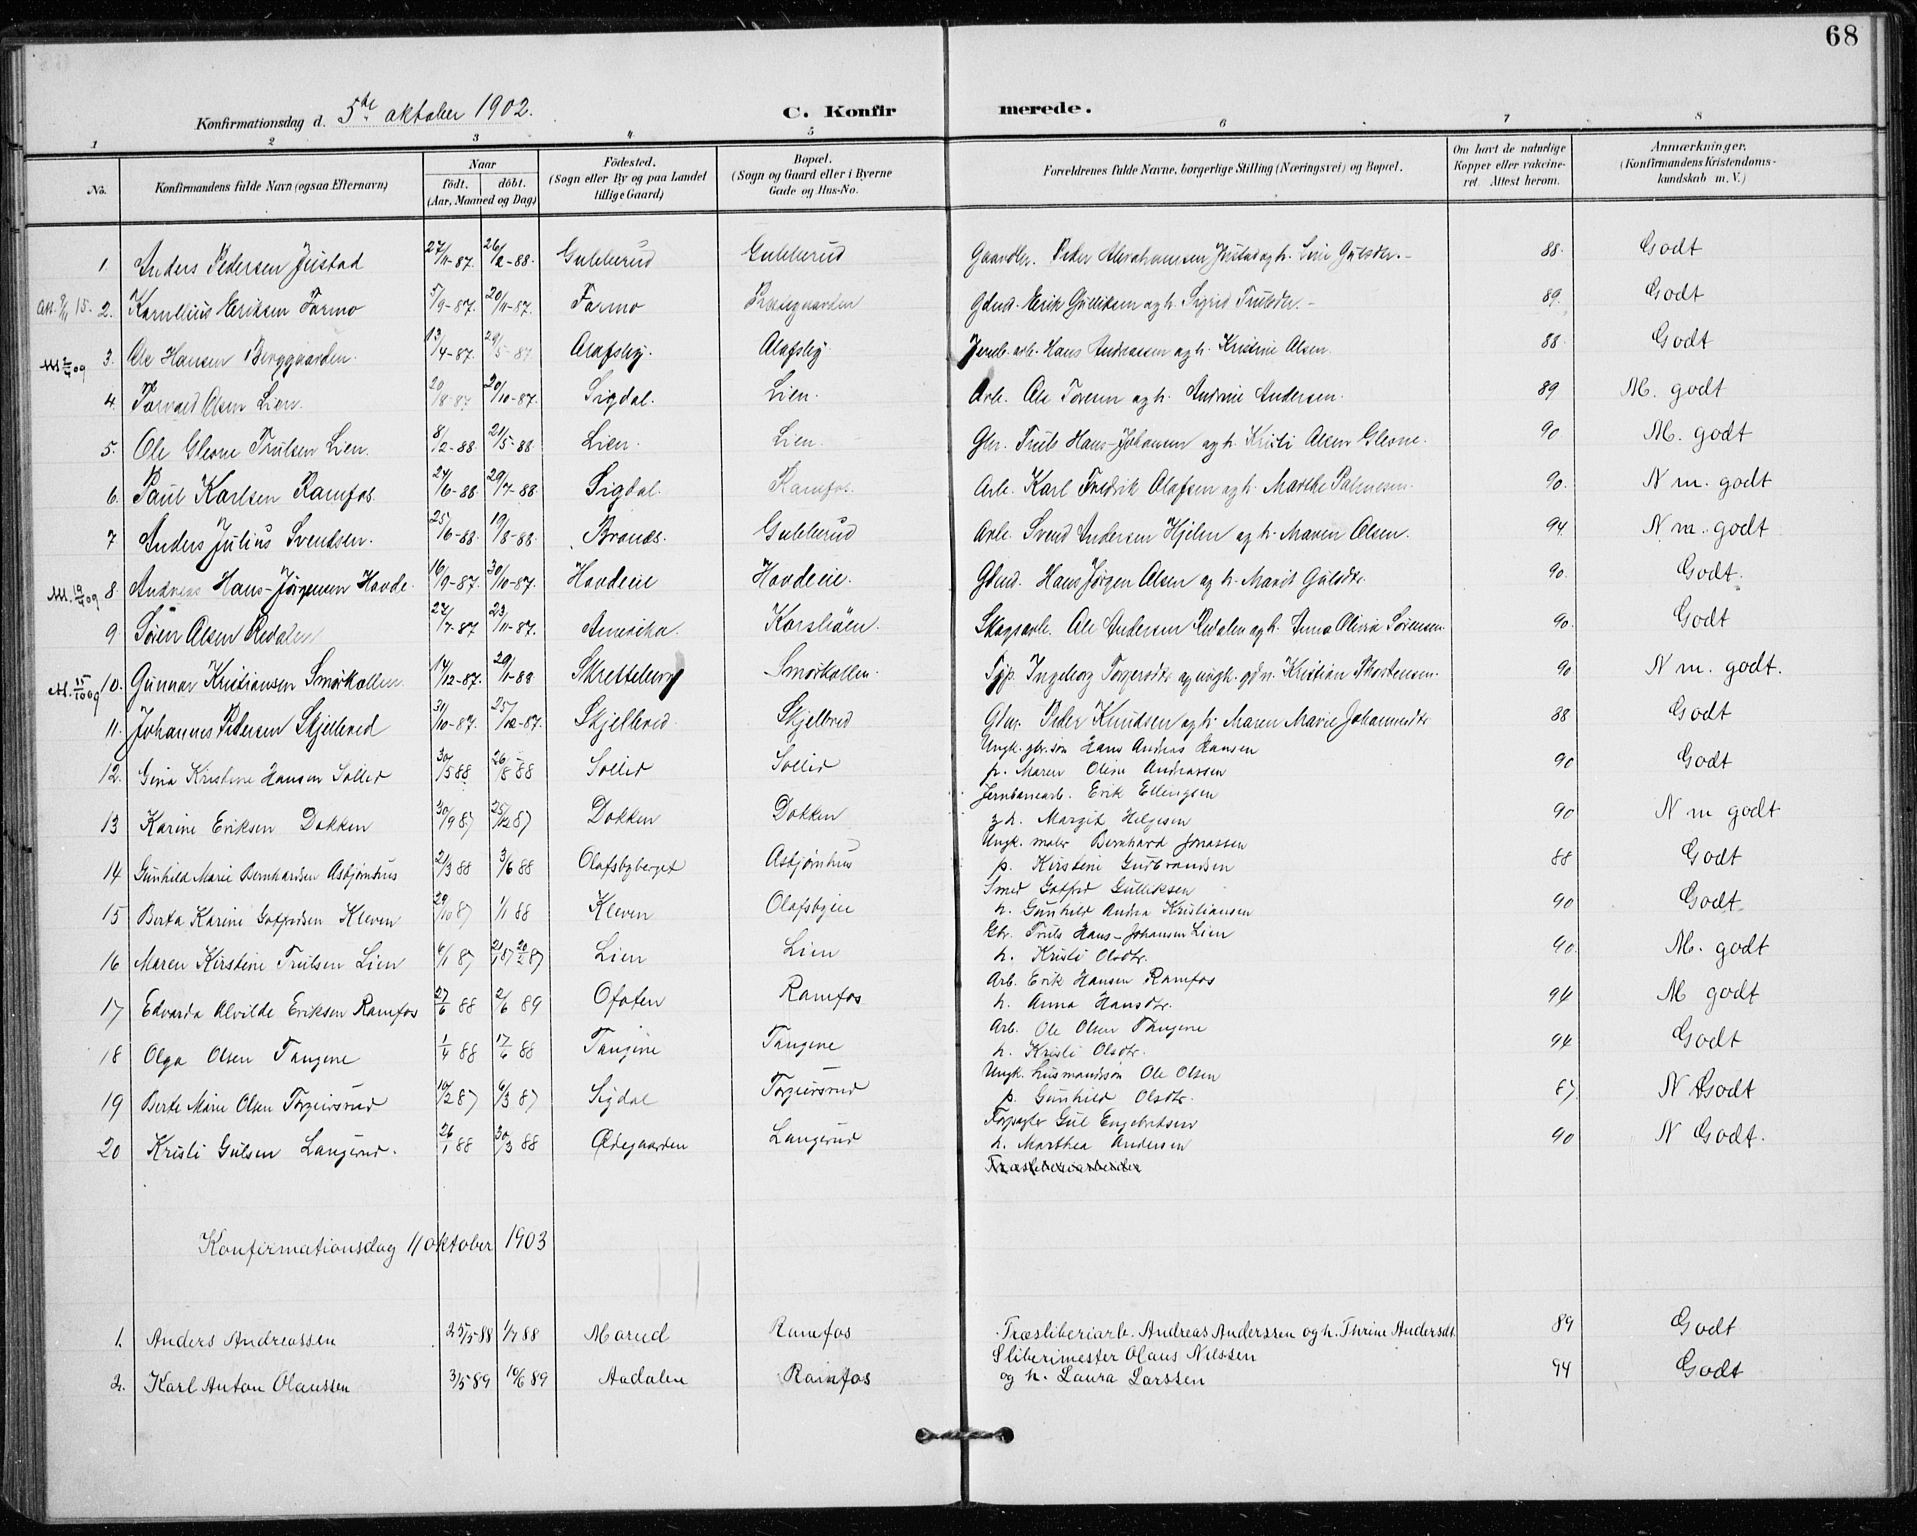 68
Konfirmationsdag d. 5te oktober 1902. C. Konfirmerede.
1 2 3 4 5 6 7 8
No. Konfirmandens fulde Navn (ogsaa Efternavn) Naar født. døbt. (Aar, Maaned og Dag) Fødested. (Sogn eller By og paa Landet tillige Gaard) Bopæl. (Sogn og Gaard eller i Byerne Gade og Hus-No. Forældrenes fulde Navne, borgerlige Stilling (Næringsvei) og Bopæl. Om havt de naturlige Kopper eller vakcineret. Attest herom. Anmærkninger. (Konfirmandens Kristendomskundskab m. V.)
1 Anders Pedersen Justad 27/11-87. 26/2-88. Gubberud Gubberud Gaardbr. Peder Abrahamsen Justad og h. Lise Gulsdtr. 88. Godt
2. Kornelius Eriksen Formo 5/9-87. 20/11-87. Formo Gdmd. Erik Gulliksen og h. Sigrid Trulsdtr. 89. Godt
3. Ole Hansen Berggaarden. 13/4-87. 29/5-87 Olafsby. Olafsby Jernb. arb. Hans Andreassen og h. Kristine Olsen. 88. Godt
4. Torvald Olsen Lien. 20/8-87 20/10-87. Sigdal. Lien. Arb. Ole Toresen og h. Andrine Andersen. 89 M. godt
5. Ole Gleone Trulsen Lien. 8/2-88. 21/5-88. Lien. Lien. Gbr. Truls Hans-Johansen og h. Kristi Olsen Gleone. 90 M. godt
6. Paul Karlsen Ramfos. 24/6-88. 29/7-88. Sigdal. Ramfos. Arb. Karl Fredrik Olafsen og h. Marthe Palmesen. 90. N m. godt
7 Anders Julius Svendsen. 25/6-88. 19/8-88. Branæs. Gubberud Arb. Svend Andersen Hjelen og h. Maren Olsen. 94. N m. godt
M. 19/4 09 8. Andreas Hans-Jørgensen Hovde. 16/9-87. 30/10-87. Hovdeie Hovdeie. Gdmd. Hans Jørgen Olsen og h. Marit Gulsdtr. 90. Godt.
9 Søren Olsen Redalen 27/7-87 23/11-87. Amerika. Korsbøen. Skogsarb. Ole Andersen Redalen og h. Anna Olivia Sørensen 90. Godt
M. 15/10 09 10. Gunnar Kristiansen Smørkollen 14/12-87. 29/1-88 Skretteberg Smørkollen. Tjp. Ingeborg Torgersdtr og ungk. gdm. Kristian Thorstensen. 90 N m. godt.
11. Johannes Pedersen Skjelbred 31/10-87. 25/12-87. Skjelbred. Skjelbred Gdmr. Peder Knudsen og h. Maren Marie Johannesdtr 88 Godt
12. Gina Kristine Hansen Sollid 30/5 88 26/8-88 Sollid Sollid Ungk. gbr. søn Hans Andreas Hansen
p. Maren Oline Andreassen 90 Godt
13 Karine Eriksen Dokken 30/9 87 25/12 87 Dokken Dokken Jernbanearb. Erik Ellingsen
g. h. Margit Helgesen 90 N m godt
14 Gunhild Marie Bernhardsen Asbjørnhus 21/3 88 3/6 88 Olafsbyberget Asbjørnhus Ungk. maler Bernhard Jonassen
p. Kirstine Gudbrandsen 88 Godt
15 Berta Karine Gotfredsen Kleven 29/10 87 1/1 88 Kleven Olafsbyeie Smed Gotfred Gulliksen
h. Gunhild Andrea Kristiansen 90 Godt
16 Maren Kirstine Trulsen Lien 6/1 87 20/2 87 Lien Lien Gbr. Truls Hans-Johansen Lien
h. Kristi Olsdtr. 90. M. godt
17 Edvarda Alvilde Eriksen Ramfos 27/6 88 2/6 89 Ofoten Ramfos Arb. Erik Hansen Ramfos
h. Anna Hansdtr. 94 M godt
18 Olga Olsen Tangene 1/4 88 17/6 88 Tangene Tangene Arb. Ole Olsen Tangene
h. Kristi Olsdtr. 94 Godt
19 Berte Marie Olsen Torgeirsrud 10/2 87 6/3 87 Sigdal Torgeirsrud Ungk. husmandssøn Ole Olsen
p. Gunhild Olsdtr. 87 N Godt
20 Kristi Gulsen Langerud. 26/1 88 30/3 88 Ødegaarden Langerud Forpagter Gul Engebretsen
h. Marthea Andersen 90 N Godt.
Træsliberiarbeider
Konfirmationsdag 11 oktober 1903
1. Anders Andreassen 25/5 88 1/7 88 Morud Ramfos Træsliberiarb. Andreas Anderssen og h. Thrine Andersdt. 89 Godt
2. Karl Anton Olaussen 3/5 89 10/6 89 Aadalen Ramfos Sliberimester Olaus Nilssen
og h. Laura Larssen 94 Godt